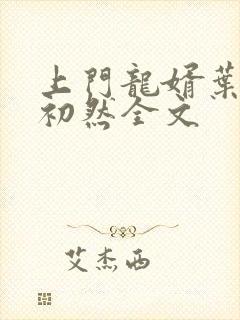 上門龍婿葉
初然全文
艾杰西